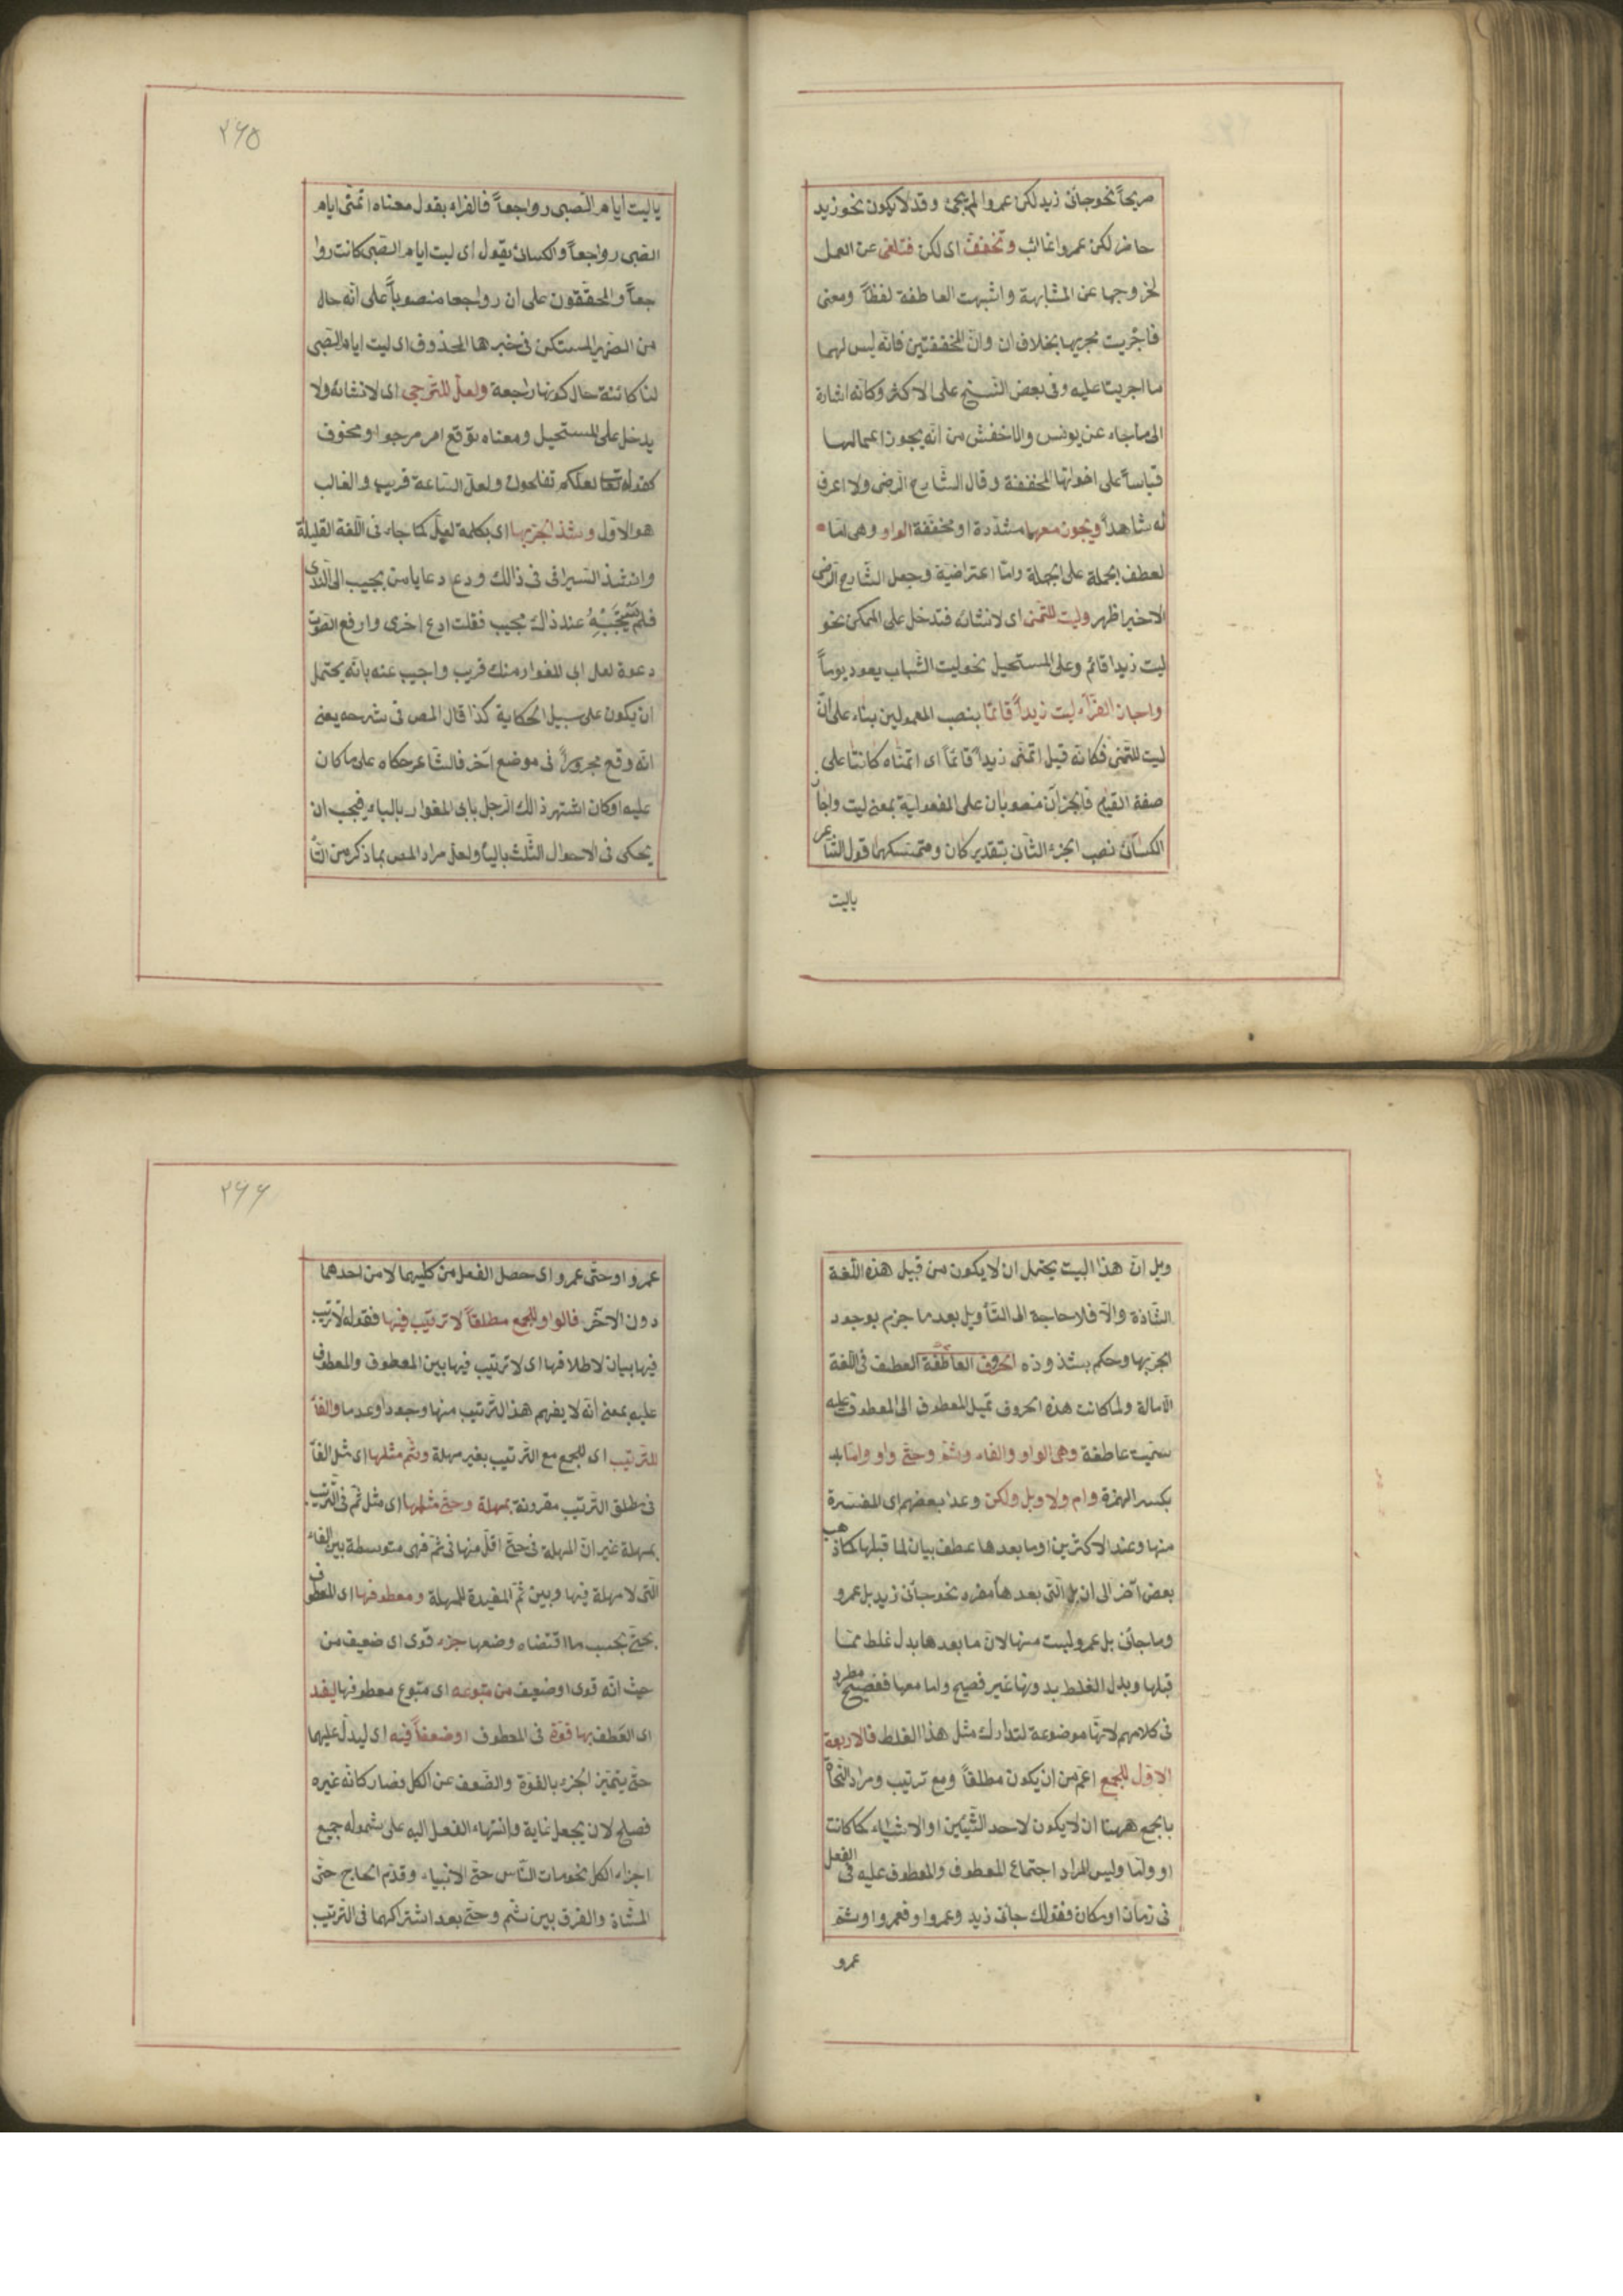 صريحاً نحو جاءنى زيد لكن عمروا لم يجئ وقد لا يكون نحو زيد
حاضر لكن عمروا غائب وتخفف اى لكن فتلغى عن العمل
لخروجها عن المشابهة واشبهت العاطفة لفظاً ومعنى
فاجريت مجريها بخلاف ان وانّ المخففتين فانه ليس لهما
ما اجريتا عليه وفى بعض النسخ على الاكثر وكانّه اشارة
الى ما جاء عن يونس والاخفش من انّه يجوز اعمالها
قياساً على اخواتها المخففة وقال الشّارح الرّضى ولا اعرف
له شاهداً ويجوز معها مشدّدة او مخفّفة الواو وهى امّا
لعطف الجملة على الجملة وامّا اعتراضيّة وجعل الشّارح الرّضى
الاخير اظهر وليت للتّمنى اى لانشائه فتدخل على الممكن نحو
ليت زيدا قائم وعلى المستحيل نحو ليت الشّباب يعود يوماً
واجاز الفرّاء ليت زيداً قائمًا بنصب المعمولين بناء على انّ
ليت للتّمنى فكانّه قيل اتمنّى زيداً قائماً اى اتمنّاه كائنًا على
صفة القيام فالجزآن منصوبان على المفعولية بمعنى ليت واجاز
الكسائى نصب الجزء الثّانى بتقدير كان ومتمسّكهما قول الشّاعر
ياليت
٢٦٥
يا ليت ايام الصّبى رواجعاً فالفرّاء يقول معناه اتمنّى ايام
الصّبى رواجعاً والكسائى يقول اى ليت ايام الصّبى كانت روا
جعاً والمحقّقون على ان رواجعا منصوباً على انّه حال
من الضّمير المستكن فى خبرها المحذوف اى ليت ايام الصّبى
لنا كائنة حال كونها راجعة ولعلّ للتّرجى اى لانشائه ولا
يدخل على المستحيل ومعناه توقع امر مرجو او مخوف
كقوله تعا لعلّكم تفلحون ولعلّ السّاعة قريب والغالب
هو الاوّل وشذ الجرّ بها اى بكلمة لعلّ كما جاء فى اللّغة القليلة
وانشد السّيرافى فى ذالك وداع دعا يا من يجيب الى النّدى
فلم يستجبه عند ذاك مجيب فقلت ادع اخرى وارفع الصّوت
دعوة لعل ابى المغوار منك قريب واجيب عنه بانّه يحتمل
ان يكون على سبيل الحكاية كذا قال المص فى شرحه يعنى
انّه وقع مجروراً فى موضع آخر فالشّاعر حكاه على ما كان
عليه او كان اشتهر ذالك الرّجل بابى المغوار بالياء فيجب ان
يحكى فى الاحوال الثّلث بالياء ولعلّ مراد المص بما ذكره من التّأ
ويل انّ هذا البيت يحتمل ان لا يكون من قبيل هذه اللّغة
الشّاذة والّا فلا حاجة الى التّأويل بعد ما جزم بوجود
الجرّ بها وحكم بشذوذه الحروف العاطفة العطف فى اللّغة
الامالة ولمّا كانت هذه الحروف تميل المعطوف الى المعطوف عليه
سمّيت عاطفة وهى الواو والفاء وثمّ وحتّى واو وامّا
بكسر الهمزة وام ولا وبل ولكن وعدّ بعضهم اى المفسّرة
منها وعند الاكثرين ان ما بعدها عطف بيان لما قبلها كما ذهب
بعض آخر الى ان بل الّتى بعدها مفرد نحو جاءنى زيد بل عمرو
وما جاءنى بل عمرو ليست منها لانّ ما بعدها بدل غلط ممّا
قبلها وبدل الغلط بدونها غير فصيح وامّا معها ففصيح مطرد
فى كلامهم لانّها موضوعة لتدارك مثل هذا الغلط فالاربعة
الاوّل للجمع اعمّ من ان يكون مطلقاً ومع ترتيب ومراد النّحاة
بالجمع ههنا ان لا يكون لاحد الشّيئين او الاشياء كما كانت
او وامّا وليس المراد اجتماع المعطوف والمعطوف عليه فى الفعل
فى زمان او مكان فقولك جاءنى زيد وعمروا وفعمروا وثمّ
عمرو
٢٦٦
عمروا وحتّى عمرو اى حصل الفعل من كليهما لا من احدهما
دون الآخر فالواو للجمع مطلقاً لا ترتيب فيها فقوله لا ترتيب
فيها بيان لاطلاقها اى لا ترتيب فيها بين المعطوف والمعطوف
عليه بمعنى انّه لا يفهم هذا التّرتيب منها وجوداً وعدما والفاء
للتّرتيب اى للجمع مع التّرتيب بغير مهلة وثمّ مثلها اى مثل الفاء
فى مطلق التّرتيب مقرونة بمهلة وحتّى مثلها اى مثل ثمّ فى التّرتيب
بمهلة غير انّ المهلة فى حتّى اقلّ منها فى ثمّ فهى متوسطة بين الفاء
الّتى لا مهلة فيها وبين ثمّ المفيدة للمهلة ومعطوفها اى المعطوف
بحتّى بحسب ما اقتضاه وضعها جزء قوى اى ضعيف من
حيث انّه قوى او ضعيف من متبوعه اى متبوع معطوفها ليفيد
اى العطف بها قوّة فى المعطوف او ضعفاً فيه اى ليدلّ عليهما
حتّى يتميّز الجزء بالقوّة والضّعف عن الكل فصار كانّه غيره
فصلح لان يجعل غاية وانتهاء الفعل اليه على شموله جميع
اجزاء الكل نحو مات النّاس حتّى الانبياء وقدم الحاج حتّى
المشاة والفرق بين ثمّ وحتّى بعد اشتراكهما فى التّرتيب